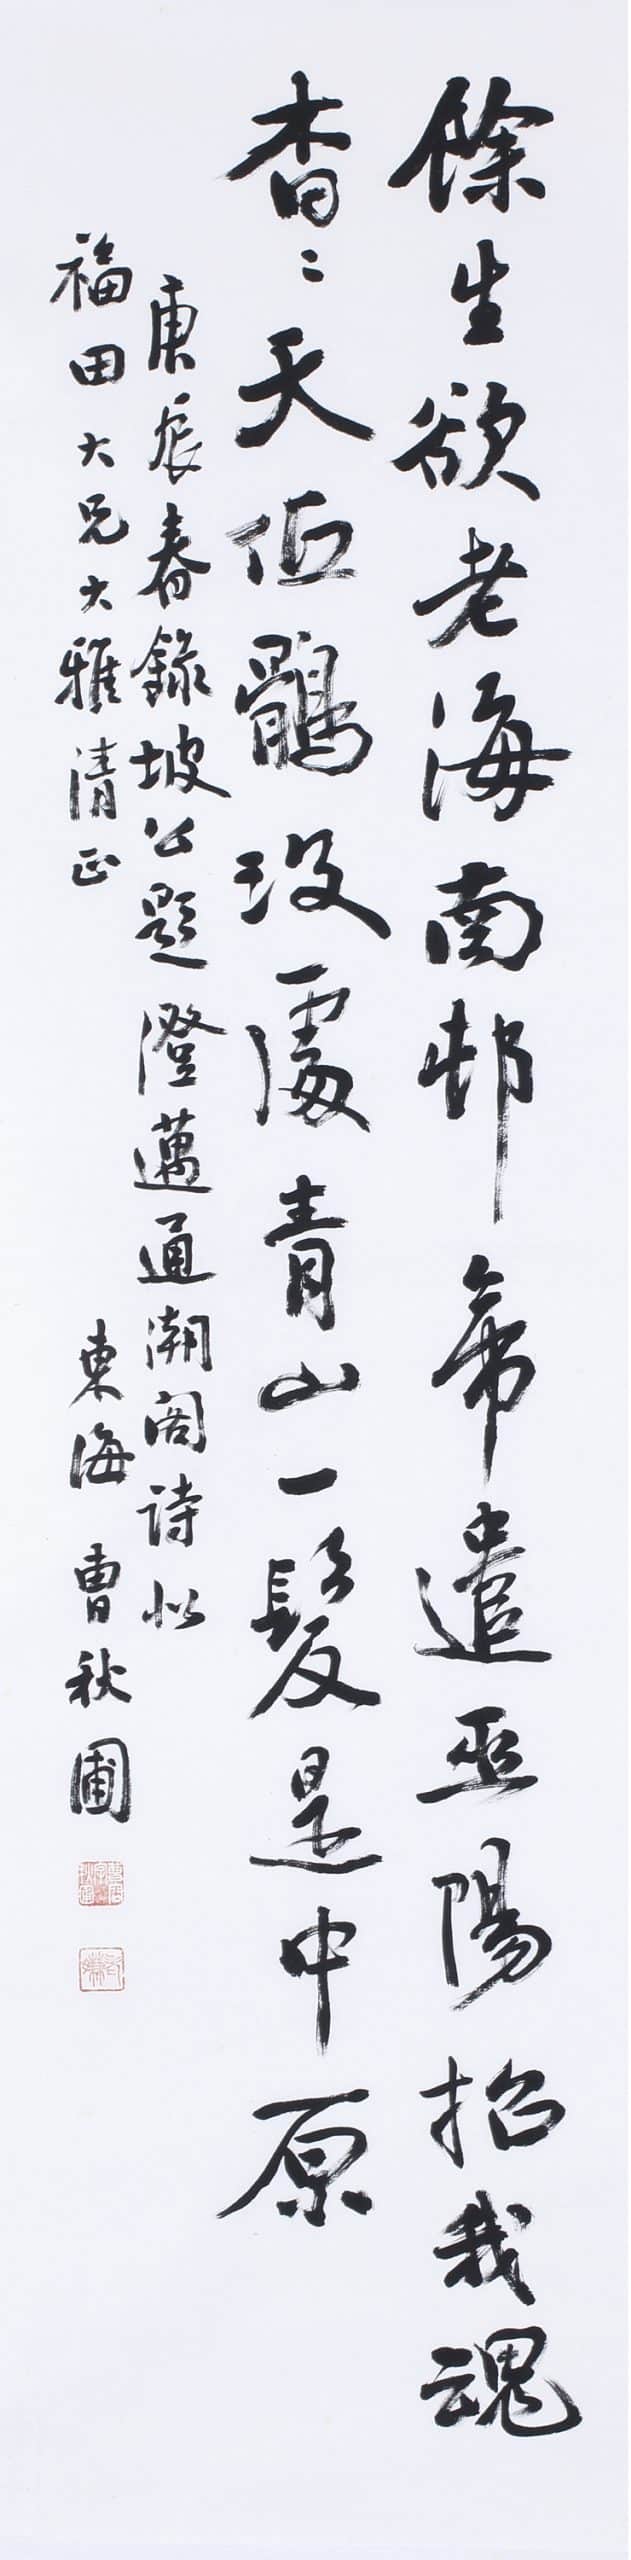 餘生欲老海南邨帝遣巫陽招我魂
杳〻天低鶻沒處青山一髮是中原
庚辰春錄坡公題澄邁通潮閣詩似
福田大兄大雅清正　東海曹秋圃